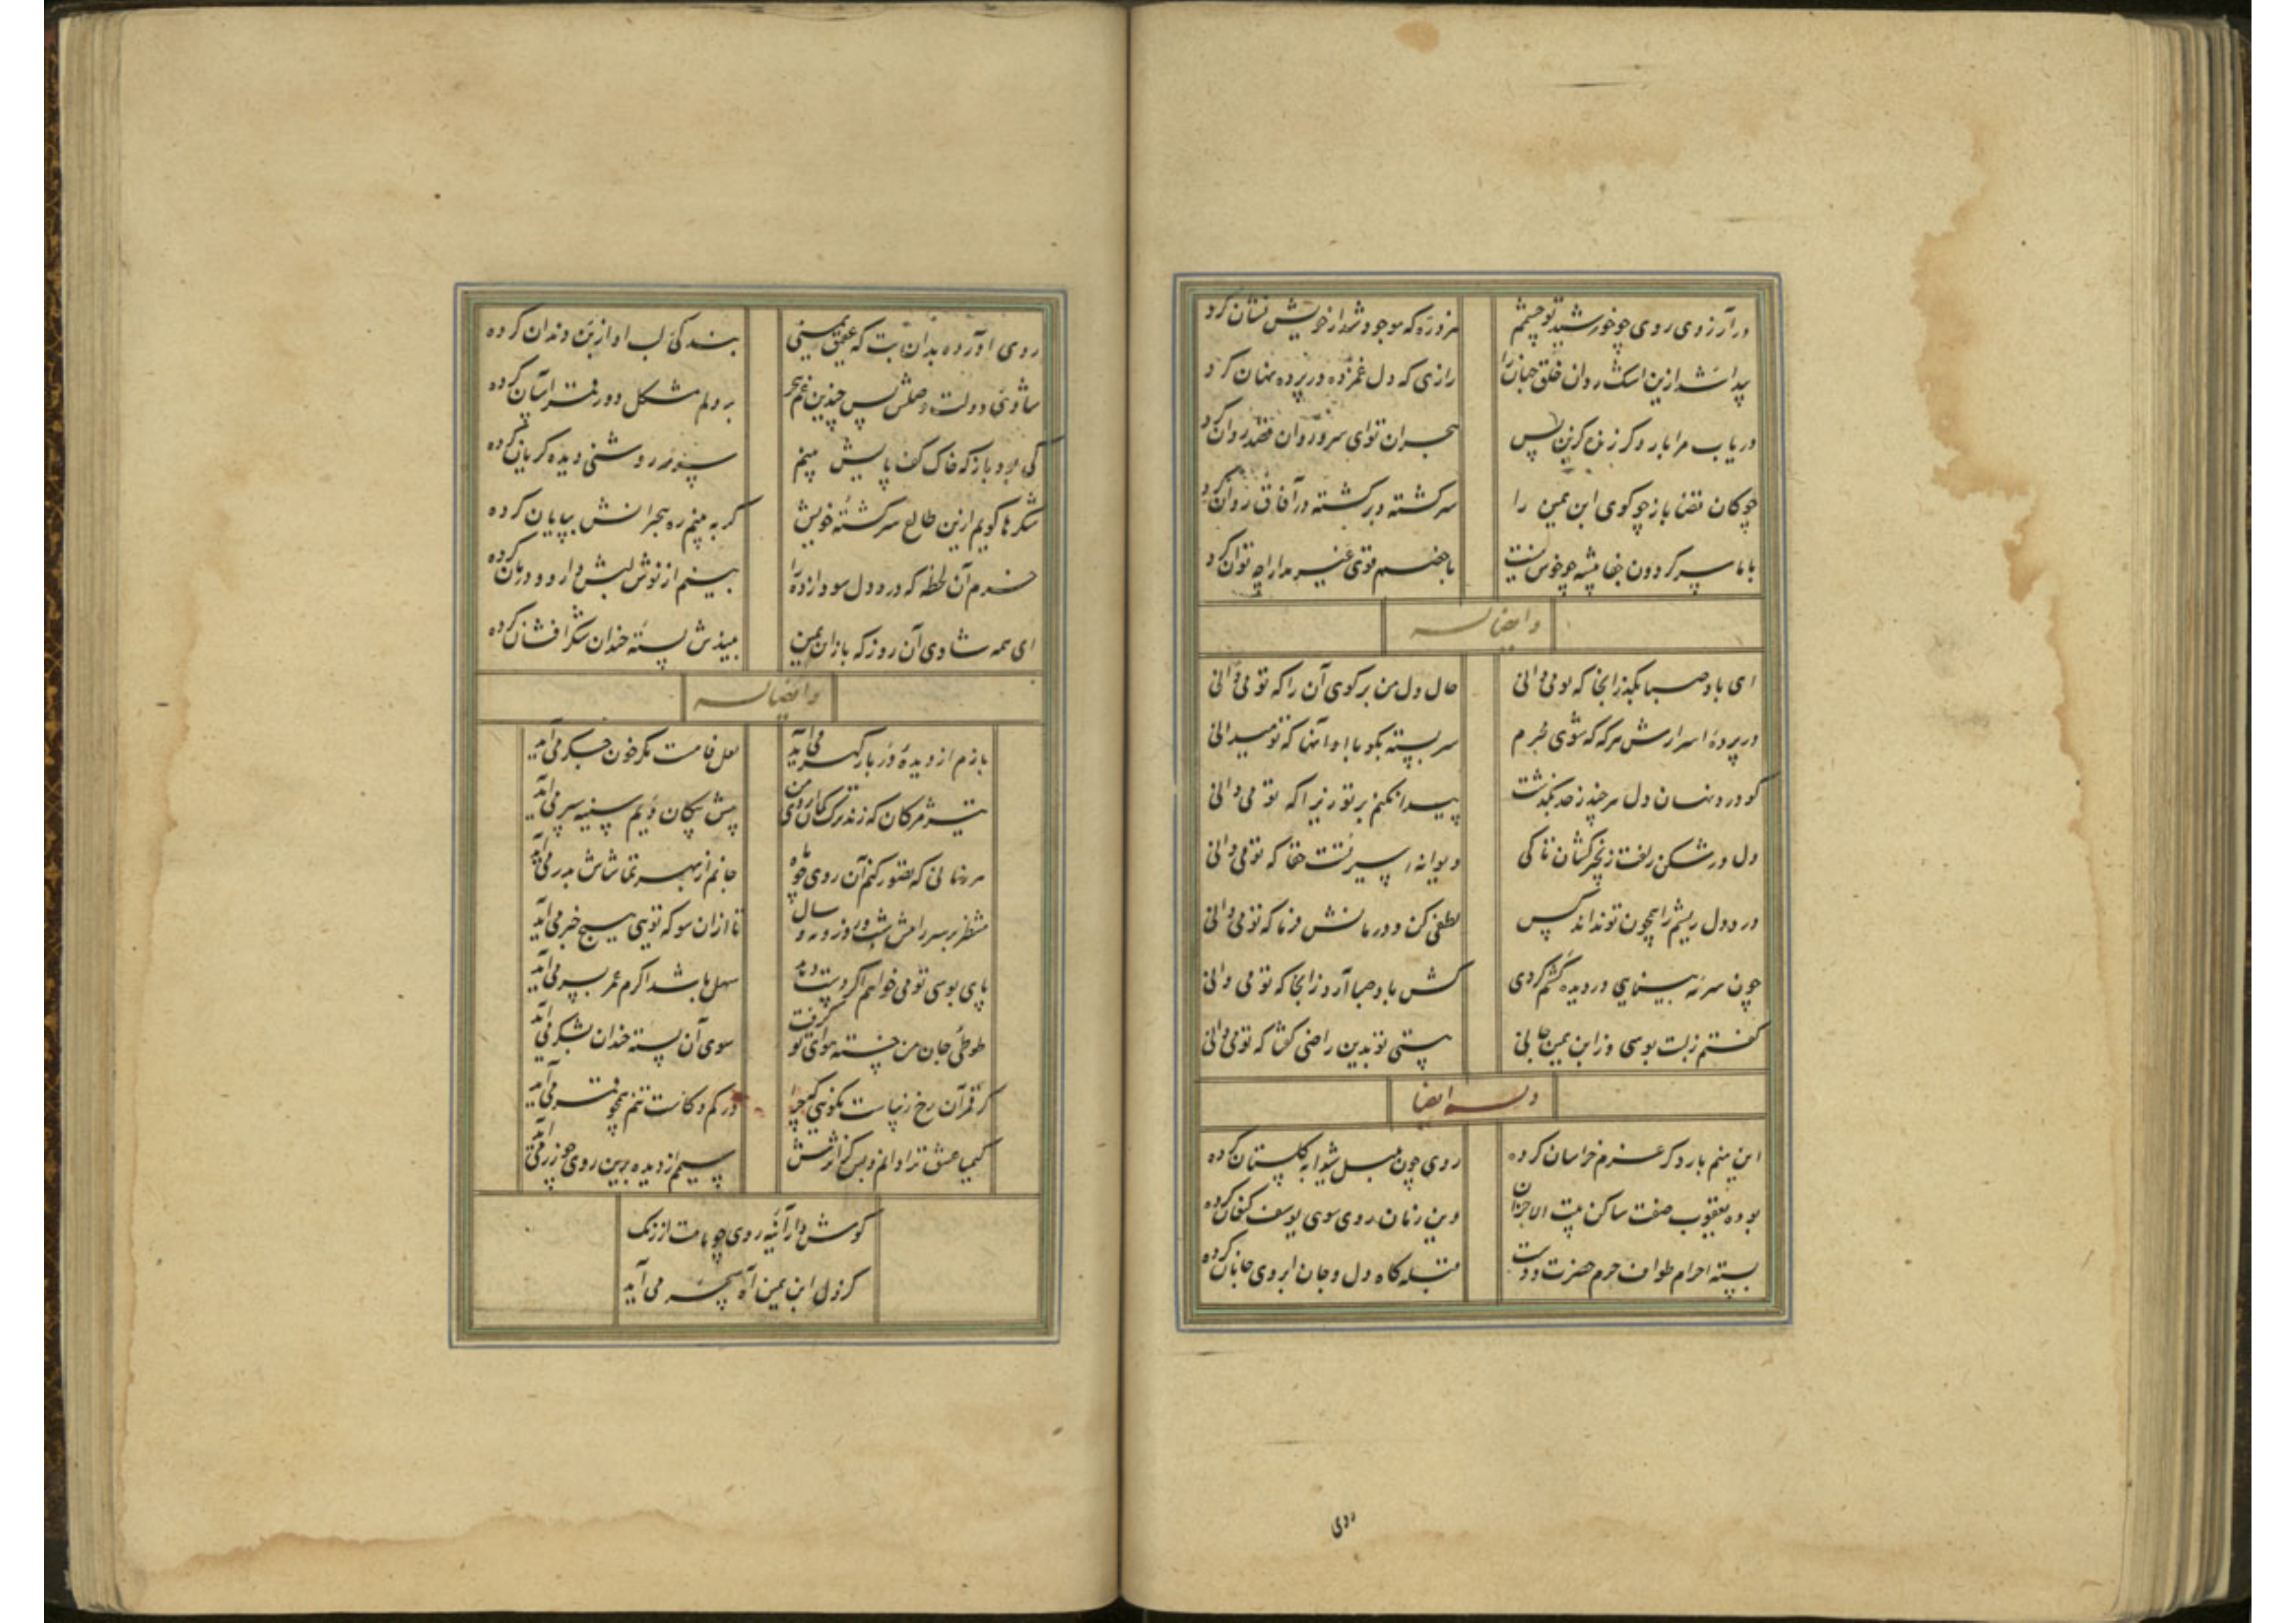 در آرزوی روی چو خورشید تو چشمم
هر ذره که موجود شد از خویش نشان کرد
پیدا شد ازین اشک روان خلق جهان را
رازی که دل غمزده در پرده نهان کرد
دریاب مرا بار دگر زنده کزین پس
هجران تو ای سرو روان قصد روان کرد
چوکان قضا باز چو کوی ابن یمین را
سرکشته و برکشته در آفاق روان کرد
با ما سر کردون جفا پیشه چو خوش نیست
با خصم قوی غیر مدارا چه توان کرد
وایضا له
ای باد صبا بکذر زانجا که تو می دانی
حال دل من بر کوی آن را که تو می دانی
در پردهٔ اسرارش هر که که شوی محرم
سر بسته بکو با او آنها که تو میدانی
کو درد نهان دل هر چند ز حد بکذشت
پیدا نکنم بر تو زیرا که تو می دانی
دل در شکن زلفت زنجیر کشان تا کی
دیوانه اسیر تست حقا که تو می دانی
درد دل ریشم را همچون تو نداند کس
لطفی کن و درمانش فرما که تو می دانی
چون سرمه بینایی در دیده کشم کردی
کش باد صبا آرد زانجا که تو می دانی
کفتم ز لبت بوسی وز ابن یمین جانی
هستی تو بدین راضی کفتا که تو می دانی
وله ایضا
این منم بار دکر عزم خراسان کرده
روی چون بلبل شیدا به کلستان کرده
بوده یعقوب صفت ساکن بیت الاحزان
وین زمان روی سوی یوسف کنعان کرده
بسته احرام طواف حرم حضرت دوست
قبله کاه دل و جان ابروی جانان کرده
روی
روی آورده بدان بت که عقیق یمنی
بندکی لب او از بن دندان کرده
شادی دولت وصلش پس چندین غم هجر
بر دلم مشکل دور قمر آسان کرده
کی بود باز که خاک کف پایش بینم
سرمهٔ روشنی دیدهٔ کریان کرده
شکرها کویم ازین طالع سرکشتهٔ خویش
کر ببینم ره هجرانش بپایان کرده
خرم آن لحظه که درد دل سودا زده را
بینم از نوش لبش دارو و درمان کرده
ای همه شادی آن روز که باز ابن یمین
بیندش پستهٔ خندان شکر افشان کرده
وایضا له
بازم از دیدهٔ دربار کهر می آید
لعل فامست مکر خون جکر می آید
تیر مژکان که زند ترک کمان ابروی من
پیش پیکان ویم سینه سپر می آید
هر زمانی که تصور کنم آن روی چو ماه
جانم از بهر تماشاش بدر می آید
منتظر بر سر راهش شب و روز و مه و سال
تا از آن سو که تویی هیچ خبر می آید
پای بوسی تو می خواهم اکر دست دهد
سهل باشد اکرم عمر بسر می آید
طوطی جان من خسته هوای تو کرفت
سوی آن پسته خندان بشکر می آید
کر قمر آن رخ زیباست بکویی که چرا
در کم و کاست تنم همچو قمر می آید
کیمیا عشق ترا دانم و بس کز اثرش
سیم از دیده برین روی چو زر می آید
کوش دار آینه روی چو ماهت از زنک
کز دل ابن یمین آه سحر می آید